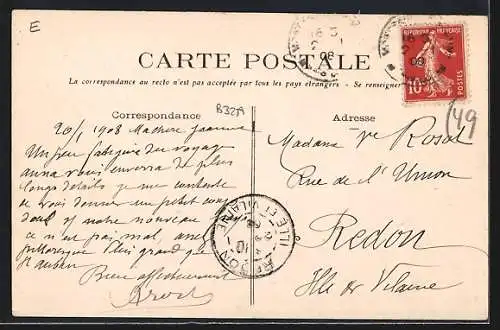 E
CARTE POSTALE
La correspondance au recto n'est pas acceptée par tous les pays étrangers - Se renseigner
RÉPUBLIQUE FRANÇAISE
10
POSTES
08
08
B32A
149
Correspondance
Adresse
20/1 1908 Ma chere Jeanne
Un peu fatiguée du voyage
anna vous enverra de plus
longs details je me contente
de vous donner un petit coup
notre nouveau
ce n'est pas mal, assez
pittoresque Plus grand que
St aubin
Bien affectueusement
Madame Vve Rosal
Rue de l'Union
Redon
Ille et Vilaine
REDON
ILLE ET VILAINE